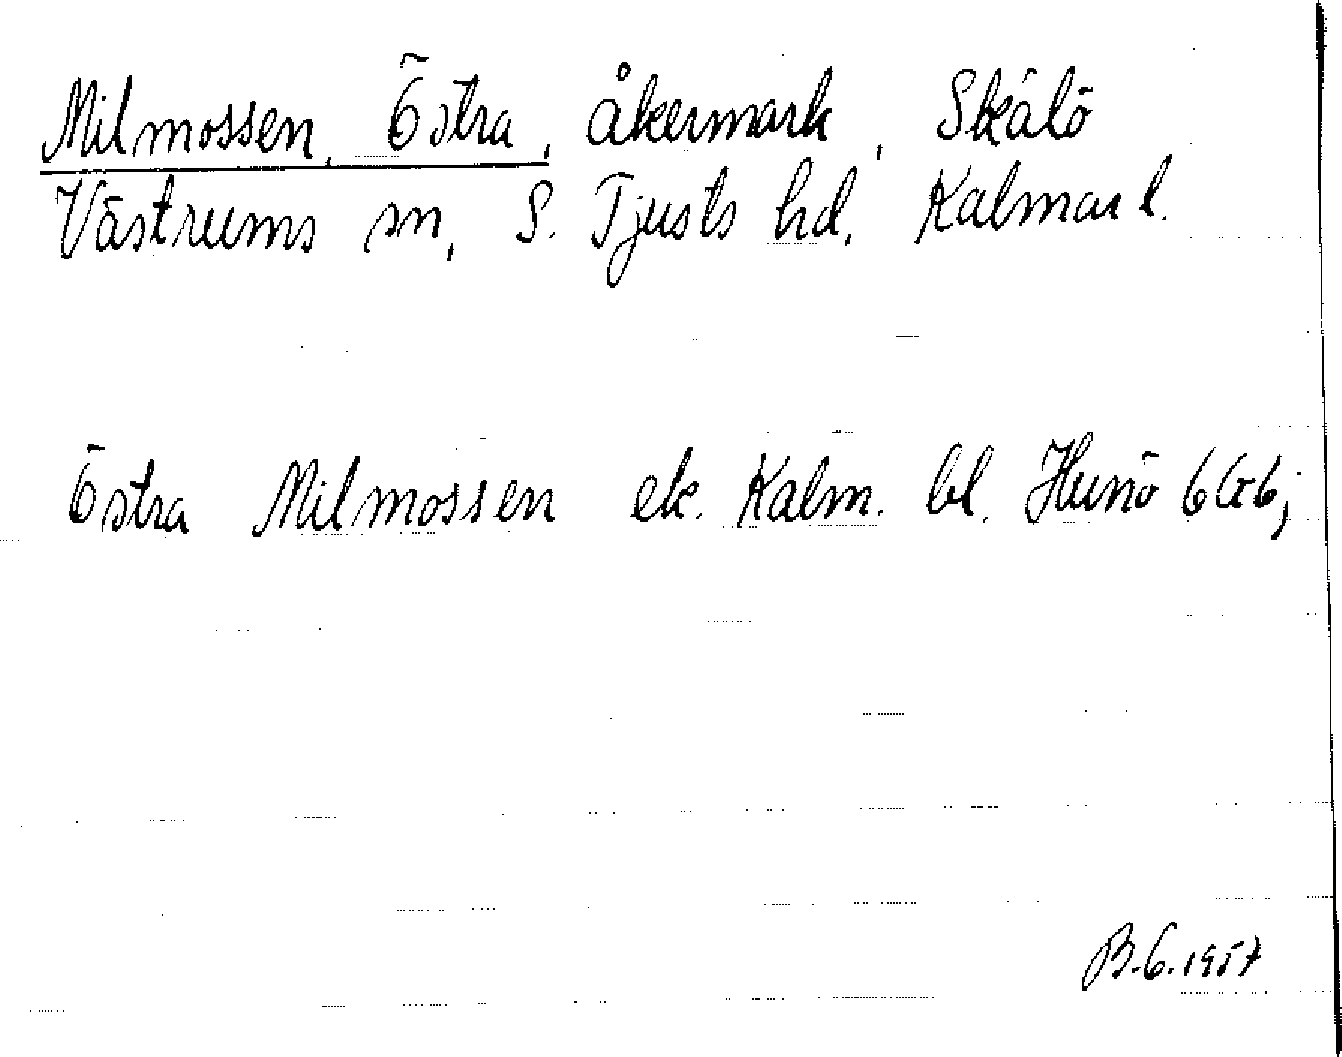 Milmossen, Östra, åkermark, Skälö
Västrums sn, S. Tjusts hd, Kalmar l.
Östra Milmossen ek. Kalm. bl. Hunö 6G6;
B.G. 1957